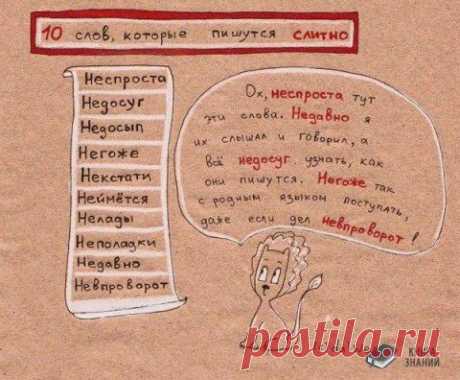 10 слов, которые пишутся слитно
Неспроста
Недосуг
Недосып
Негоже
Некстати
Неймётся
Нелады
Неполадки
Недавно
Невпроворот
Ох, неспроста тут
эти слова. Недавно я
их слышал и говорил, а
всё недосуг узнать, как
они пишутся. Негоже так
с родным языком поступать,
даже если дел невпроворот!
ЗНАНИЙ
postila.ru